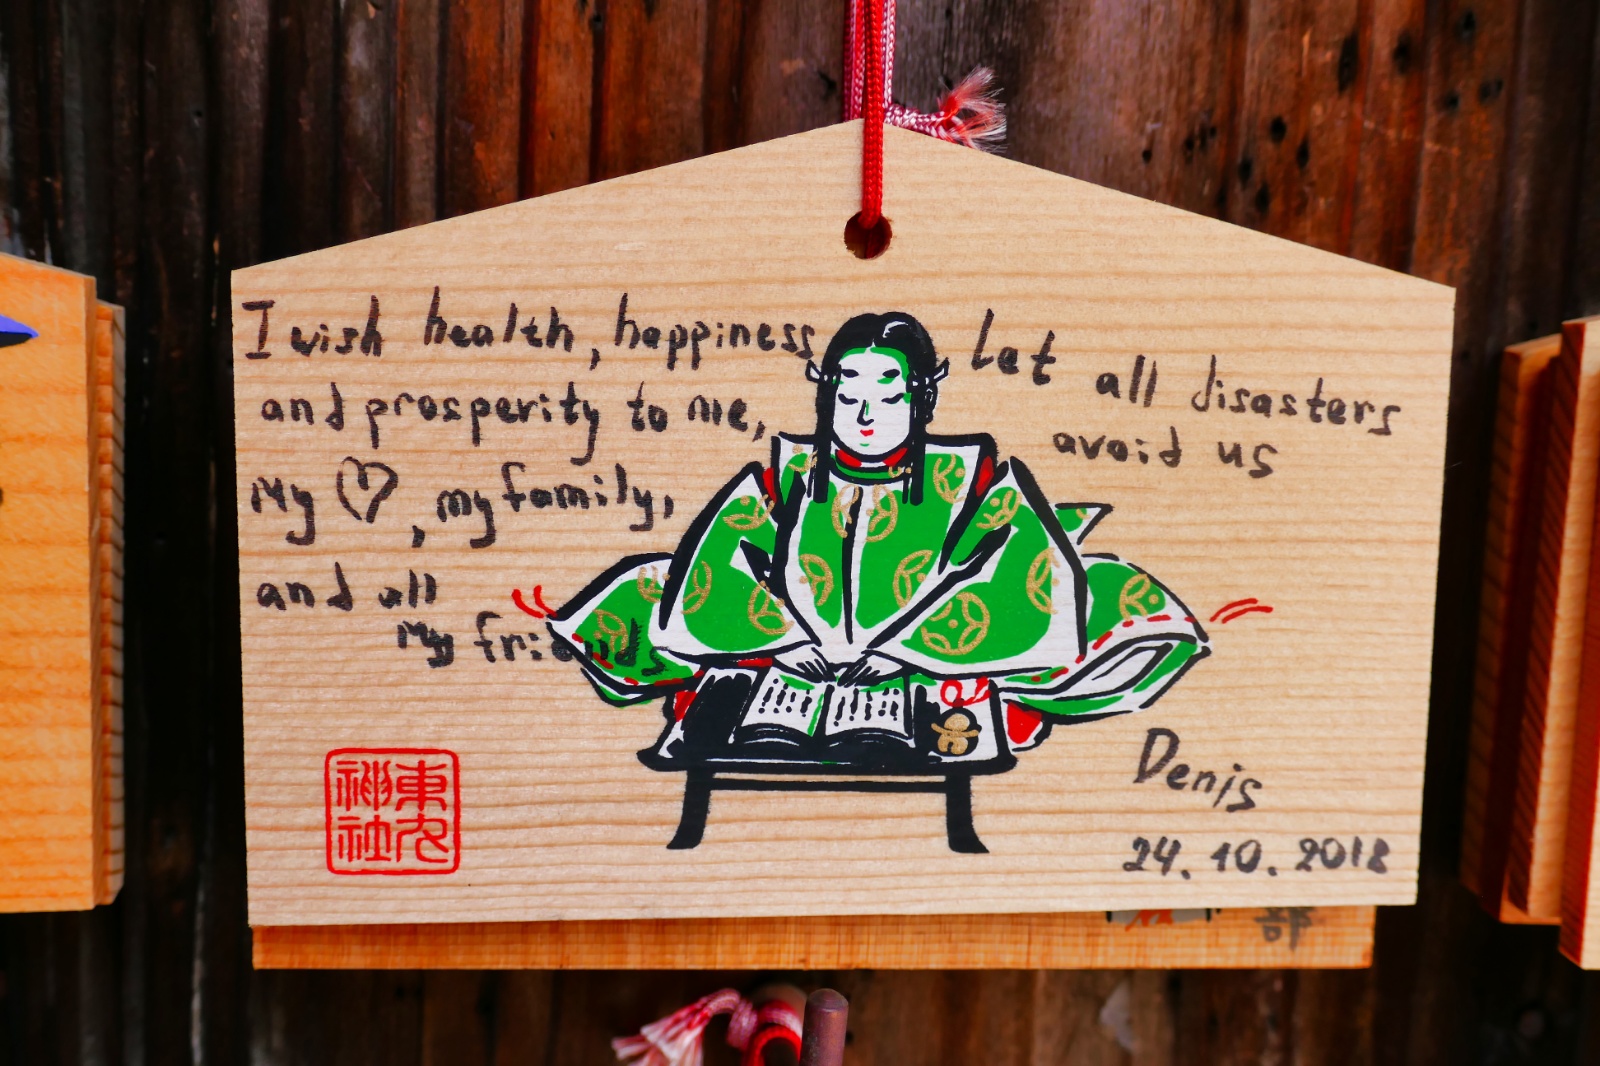 I wish health, happiness
and prosperity to me,
my ♡, my family,
and all
my friends
Let all disasters
avoid us
Denis
24.10.2018
東丸
神社
部